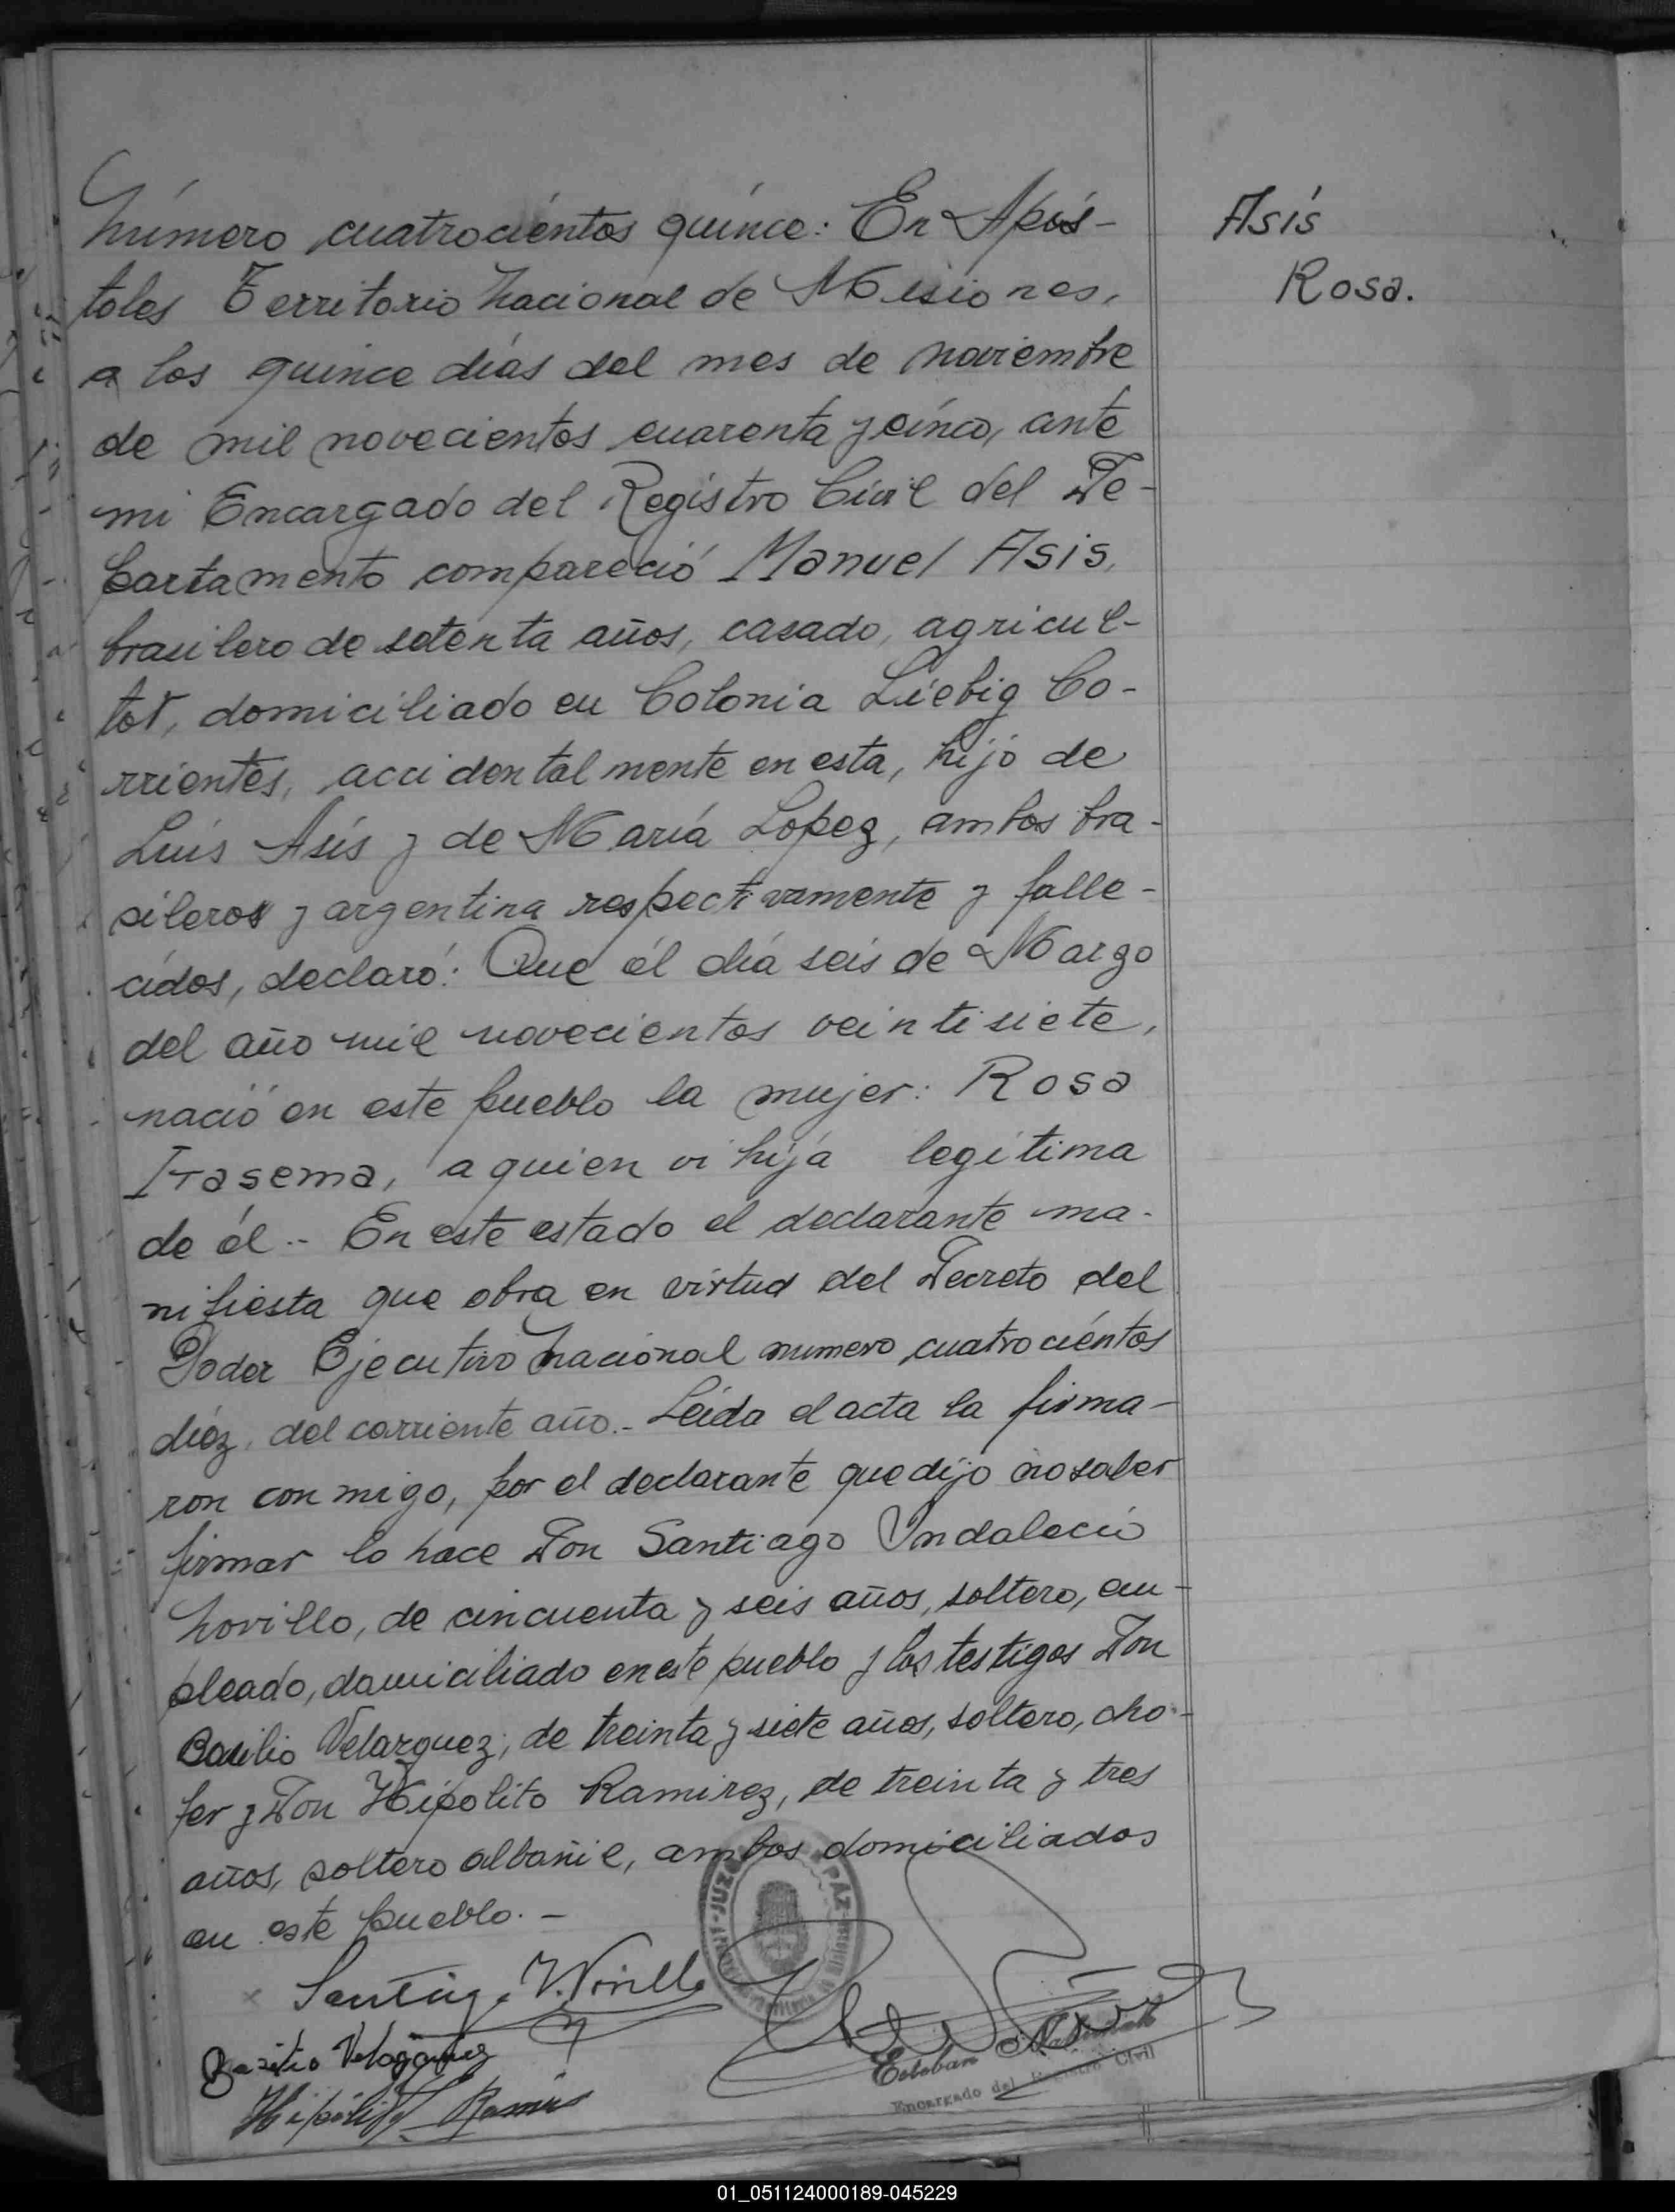 Número cuatrocientos quince: En Após-
toles Territorio Nacional de Misiones,
a los quince días del mes de noviembre
de mil novecientos cuarenta y cinco, ante
mi Encargado del Registro Civil del De-
partamento compareció Manuel Asis,
brasilero de setenta años, casado, agricul-
tor, domiciliado en Colonia Liebig Co-
rrientes, accidentalmente en esta, hijo de
Luis Asis y de María Lopez, ambos bra-
sileros y argentina respectivamente y falle-
cidos, declaró: Que el día seis de Marzo
del año mil novecientos veintisiete,
nació en este pueblo la mujer: Rosa
Irasema, a quien vi hija legítima
de él.- En este estado el declarante ma-
nifiesta que obra en virtud del Decreto del
Poder Ejecutivo Nacional numero cuatrocientos
diéz, del corriente año.- Leida el acta la firma-
ron conmigo, por el declarante que dijo no saber
firmar lo hace Don Santiago Indalecio
Novillo, de cincuenta y seis años, soltero, em-
pleado, domiciliado en este pueblo y los testigos Don
Basilio Velazquez, de treinta y siete años, soltero, cho-
fer y Don Hipolito Ramirez, de treinta y tres
años, soltero albañil, ambos domiciliados
en este pueblo.-
Santiago I. Novillo
Basilio Velazquez
Hipólito Ramirez
Esteban
Encargado del Registro Civil
JUZ PAZ
Asís
Rosa.
01_051124000189-045229